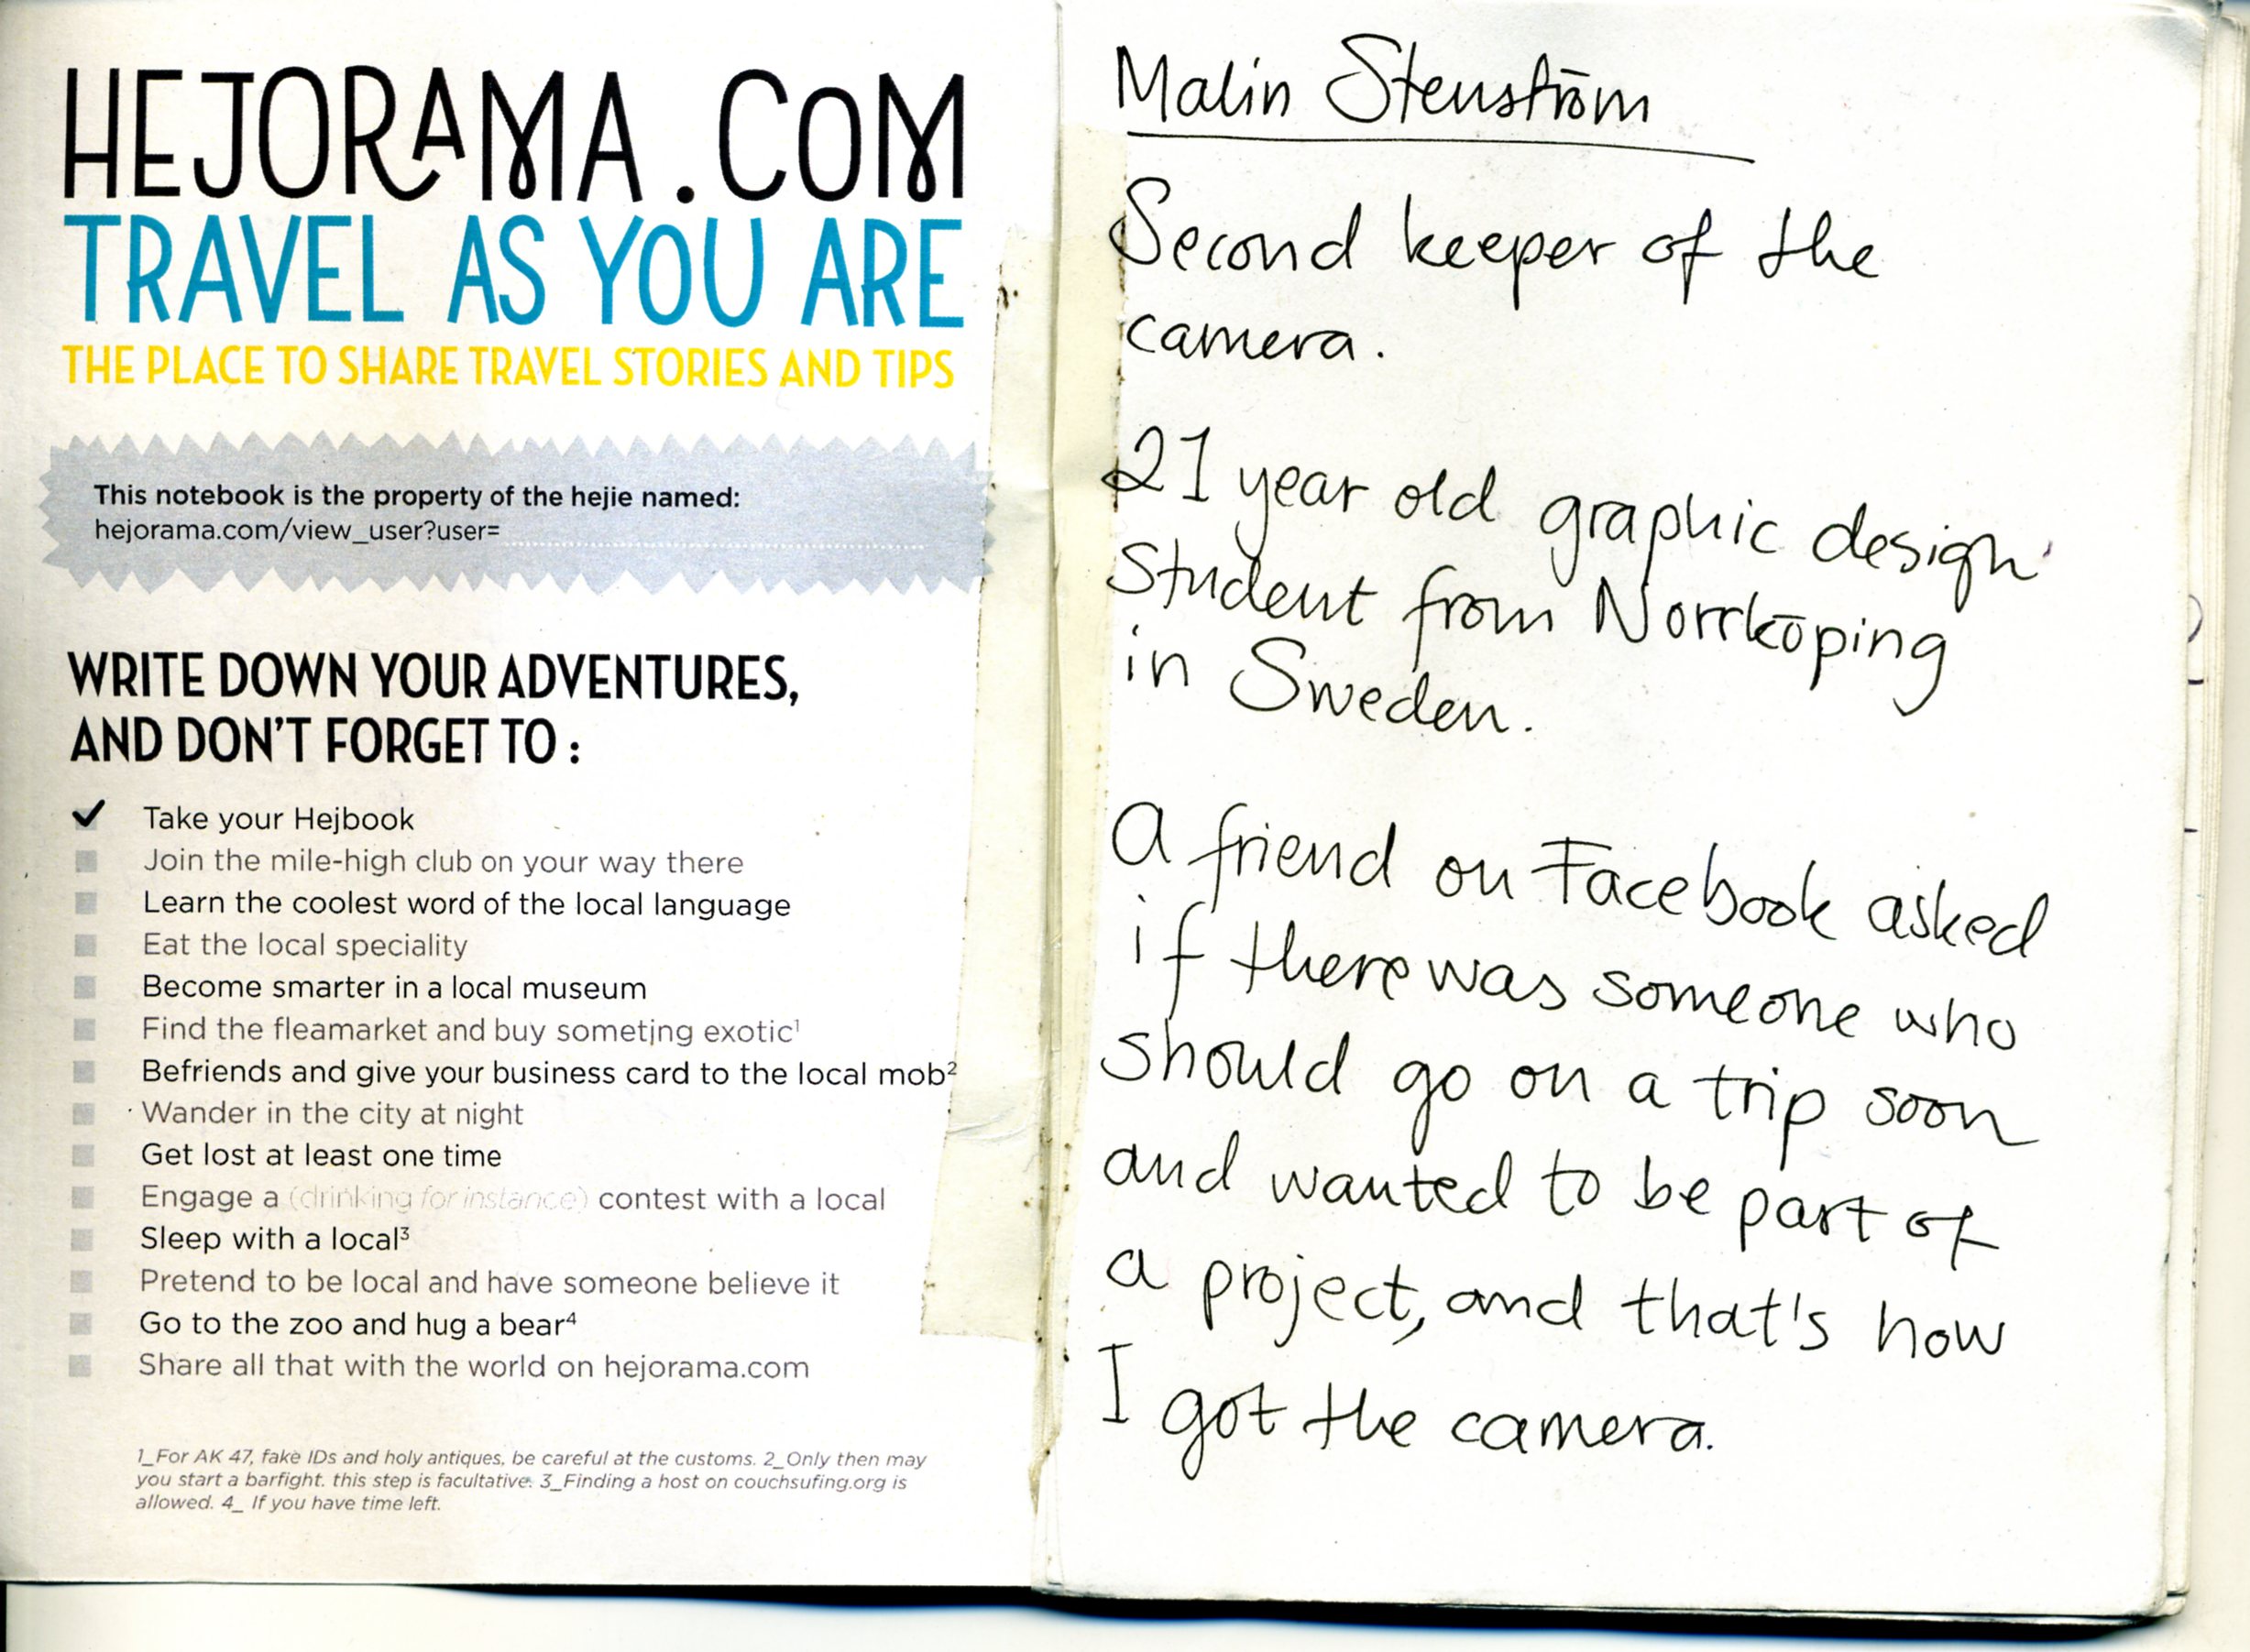 HEJORAMA.COM
TRAVEL AS YOU ARE
THE PLACE TO SHARE TRAVEL STORIES AND TIPS
This notebook is the property of the hejie named:
hejorama.com/view_user?user=
WRITE DOWN YOUR ADVENTURES,
AND DON'T FORGET TO :
Take your Hejbook
Join the mile-high club on your way there
Learn the coolest word of the local language
Eat the local speciality
Become smarter in a local museum
Find the fleamarket and buy sometjng exotic¹
Befriends and give your business card to the local mob²
Wander in the city at night
Get lost at least one time
Engage a (drinking for instance) contest with a local
Sleep with a local³
Pretend to be local and have someone believe it
Go to the zoo and hug a bear⁴
Share all that with the world on hejorama.com
1_For AK 47, fake IDs and holy antiques, be careful at the customs. 2_Only then may
you start a barfight. this step is facultative. 3_Finding a host on couchsufing.org is
allowed. 4_ If you have time left.
Malin Stenström
Second keeper of the
camera.
21 year old graphic design
student from Norrköping
in Sweden.
A friend on Facebook asked
if there was someone who
should go on a trip soon
and wanted to be part of
a project, and that's how
I got the camera.